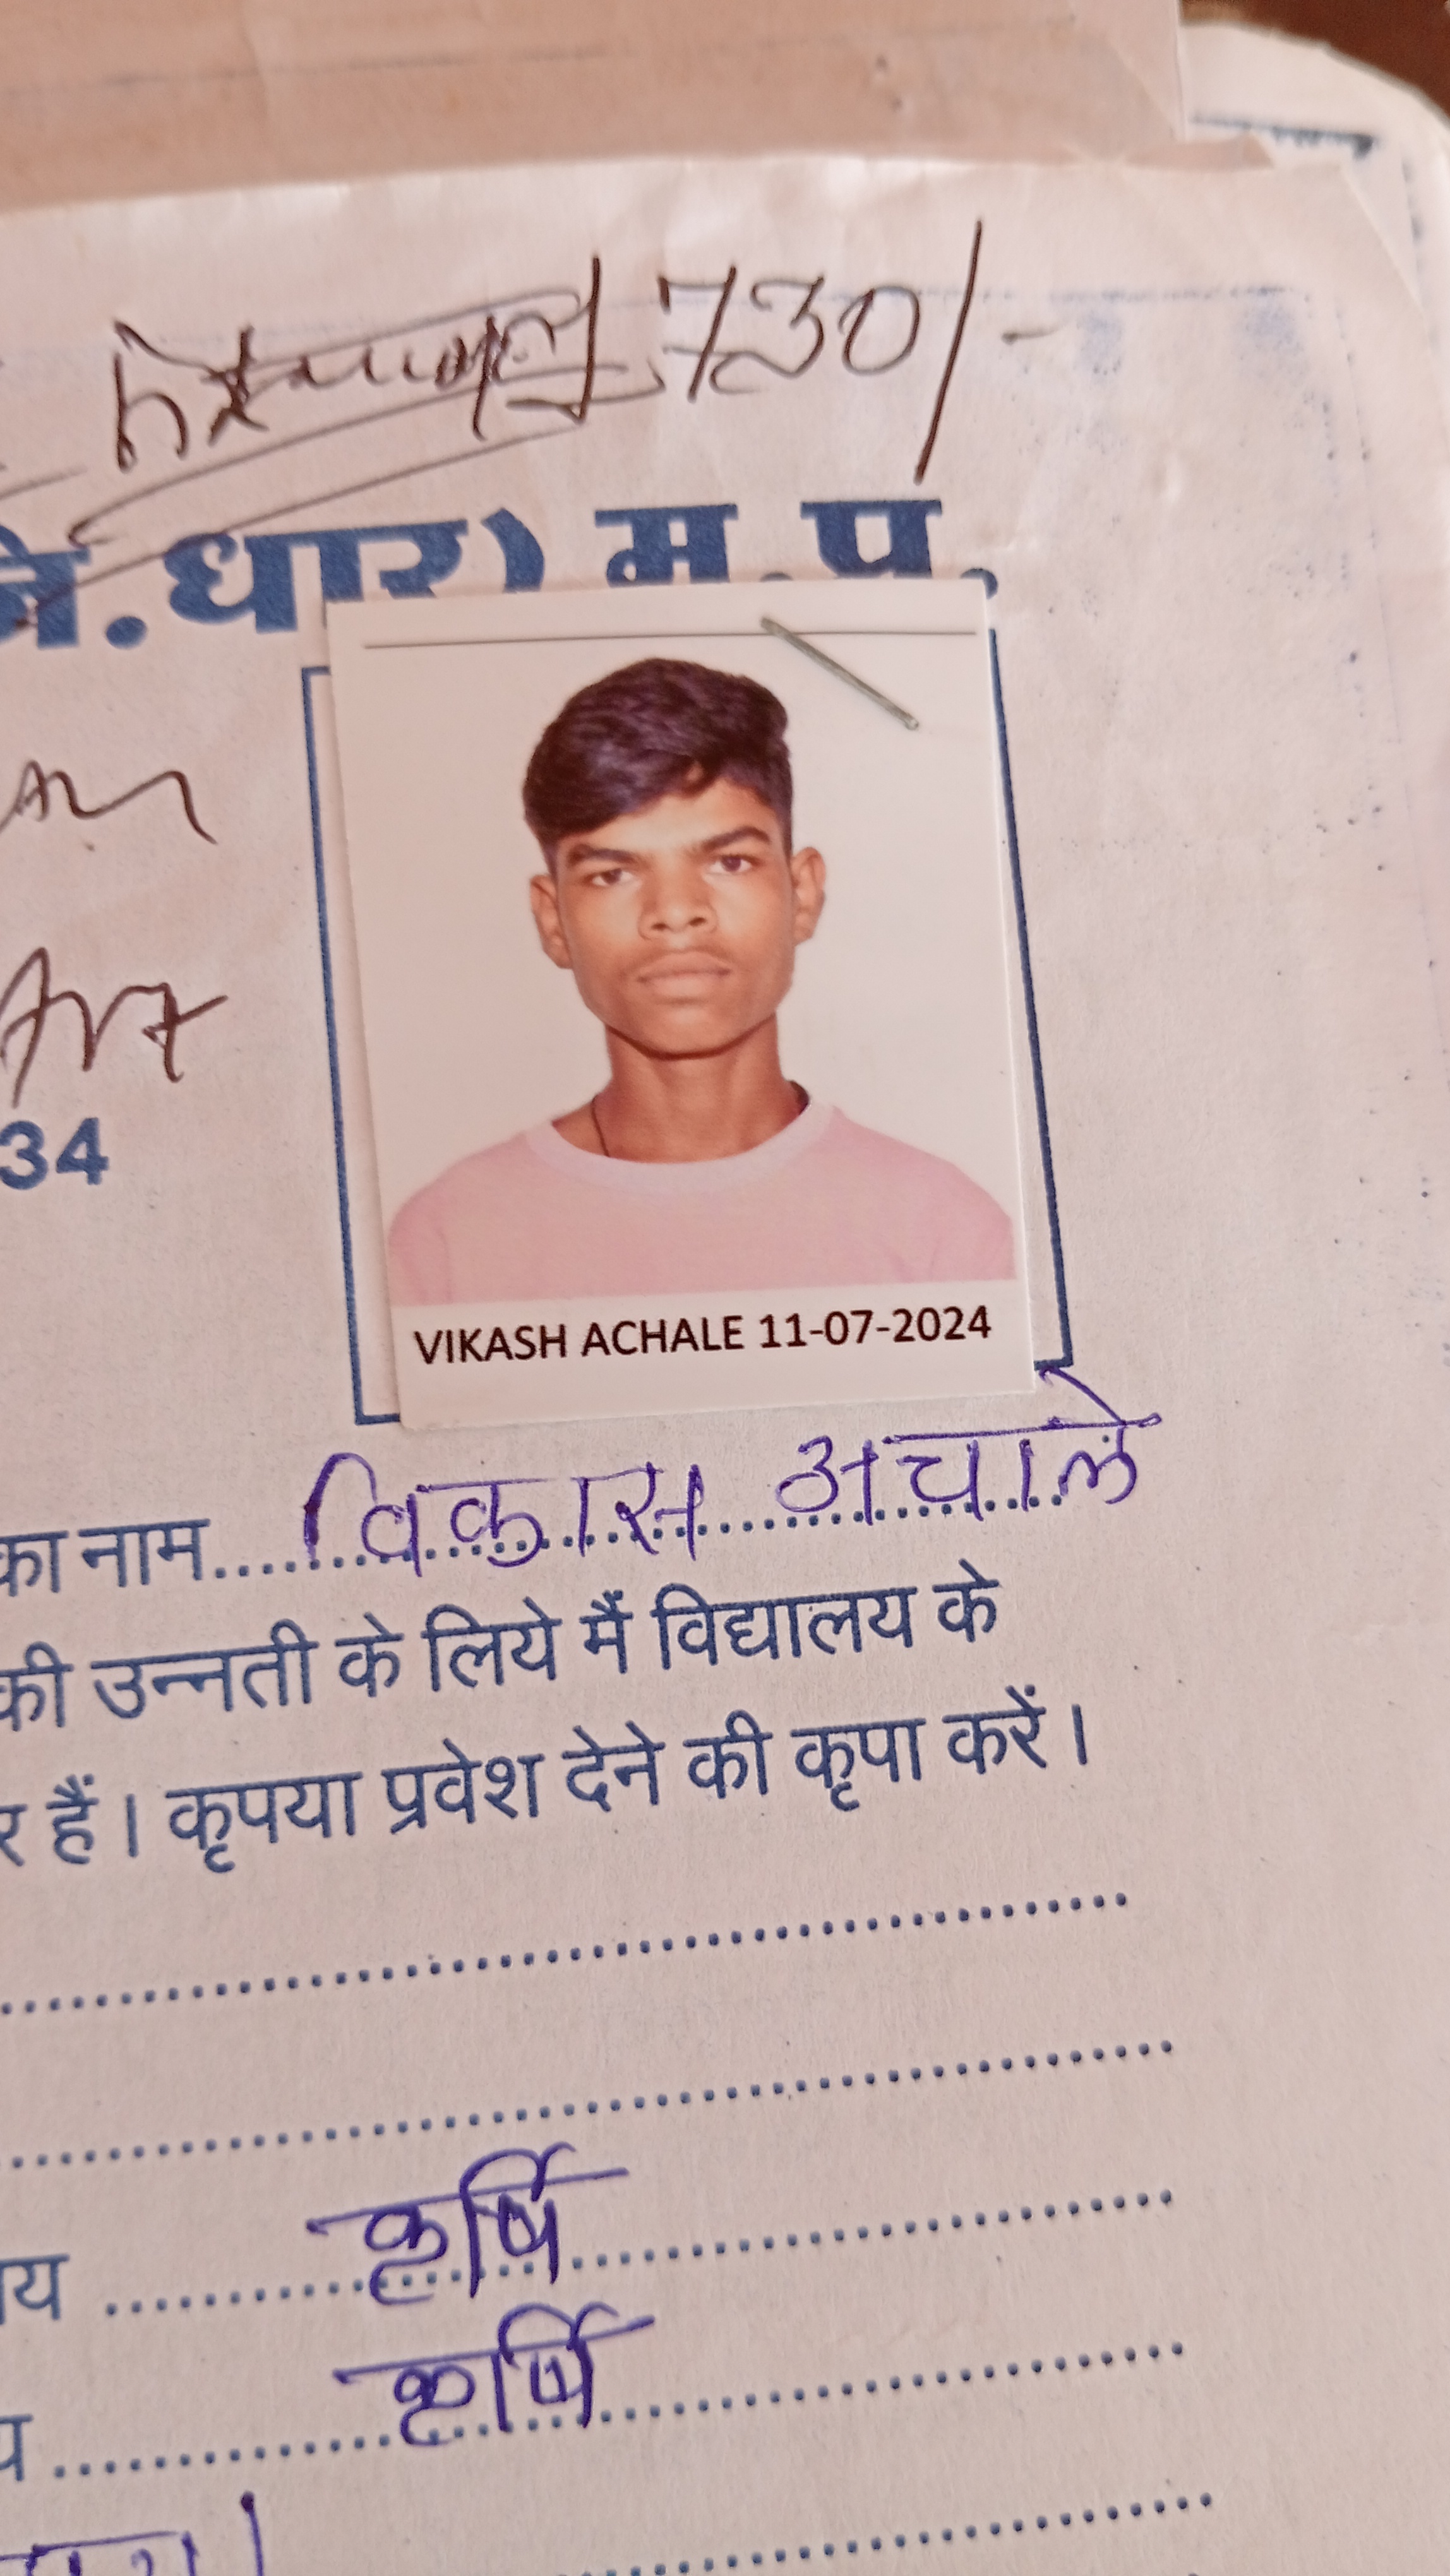 730/-
जि.धार) म.प्र.
34
VIKASH ACHALE 11-07-2024
का नाम.... विकास अचाले
की उन्नती के लिये मैं विद्यालय के
र हैं। कृपया प्रवेश देने की कृपा करें।
य .... कृर्षि
य .... कृर्षि